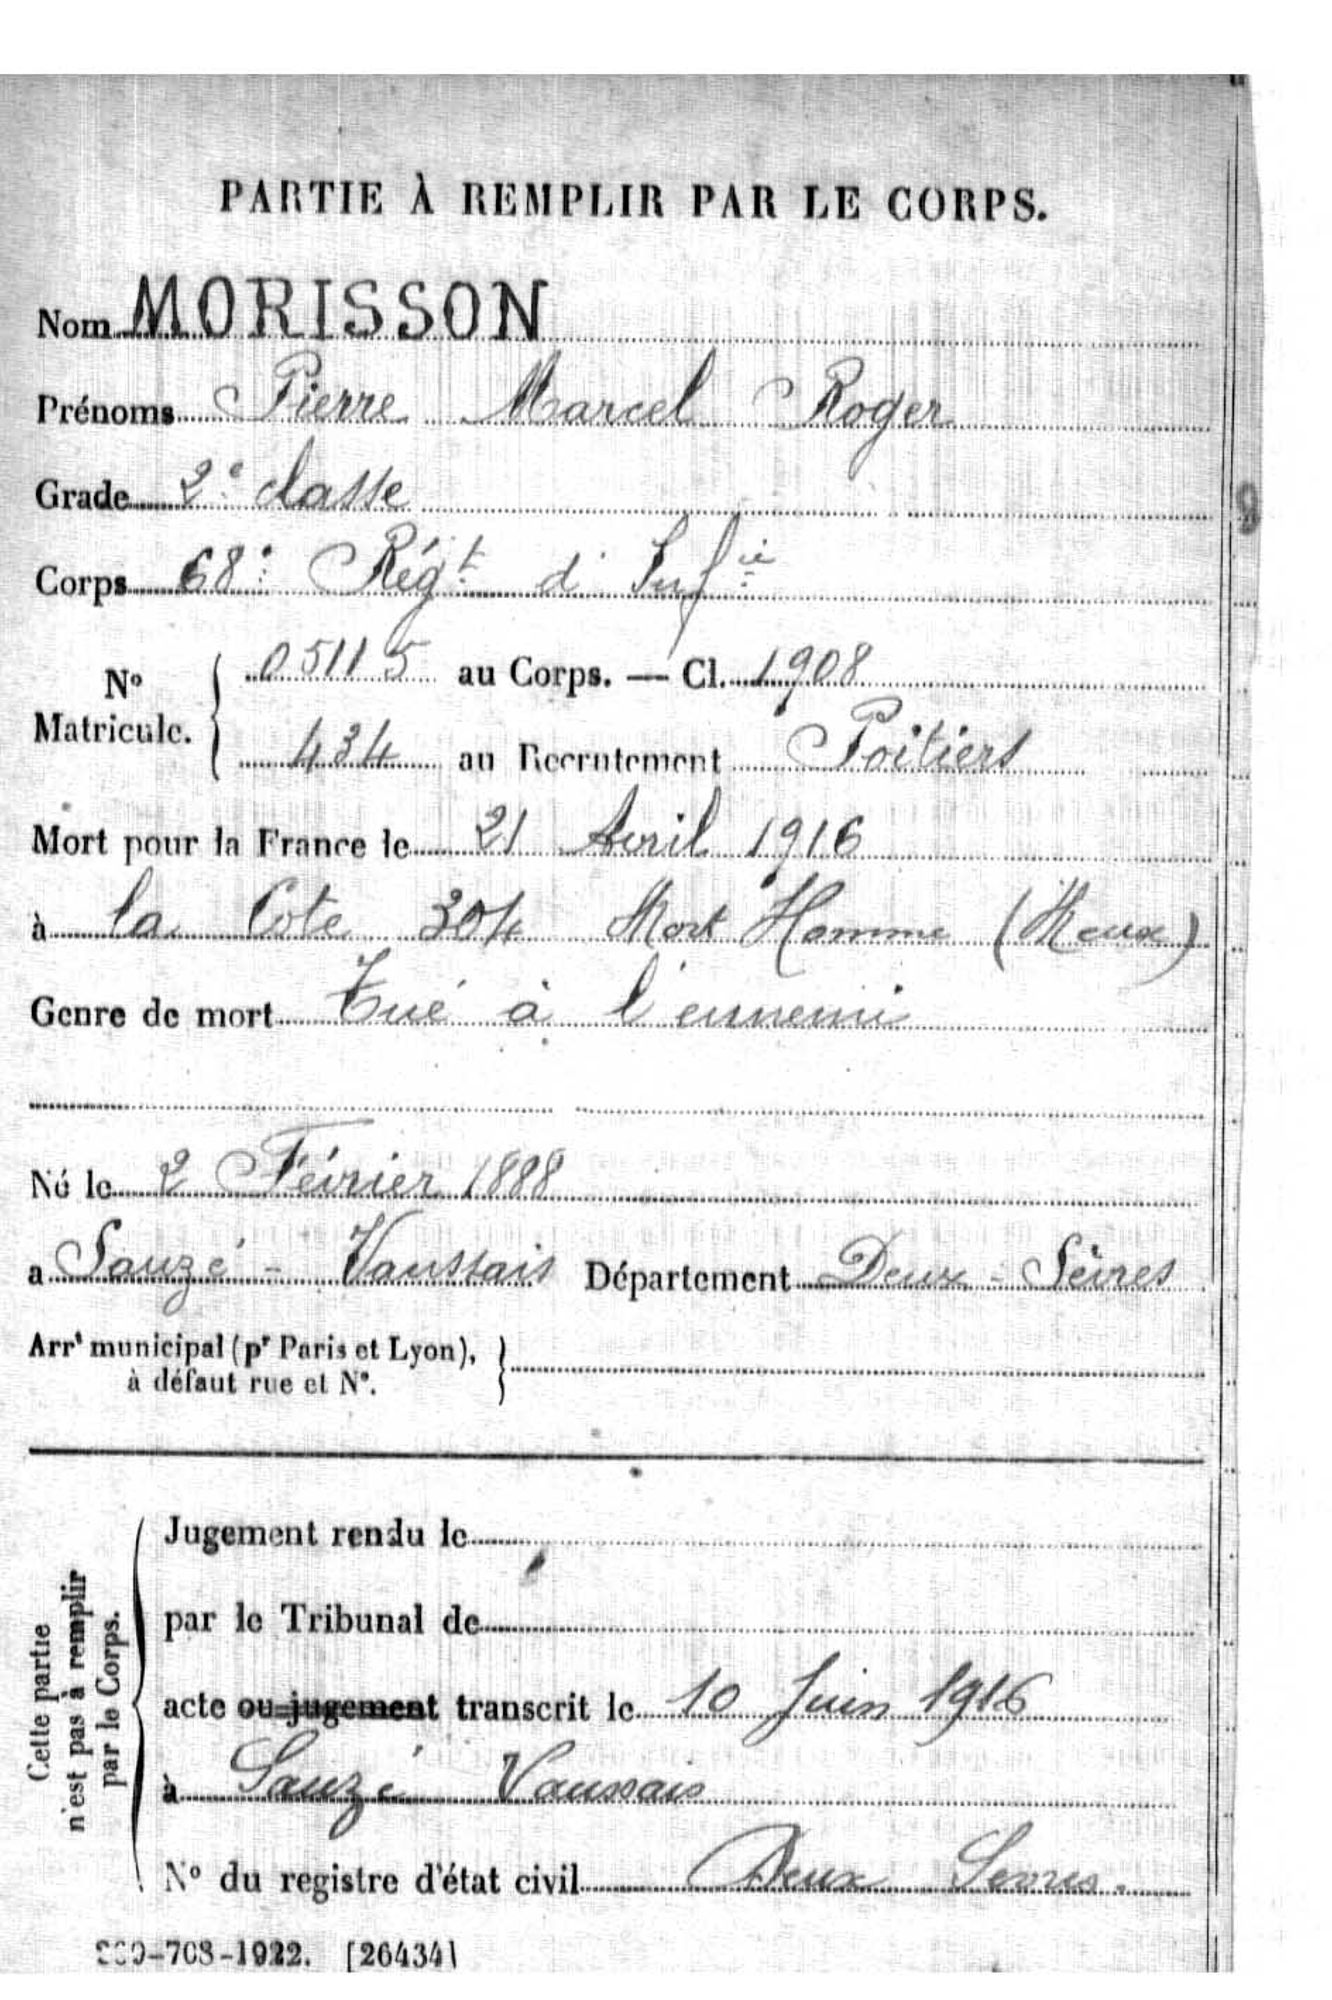 PARTIE À REMPLIR PAR LE CORPS.
Nom MORISSON
Prénoms Pierre Marcel Roger
Grade 2e classe
Corps 68e Régt d'Infie
No Matricule. { 05115 au Corps. — Cl. 1908
434 au Recrutement Poitiers
Mort pour la France le 21 Avril 1916
à la Cote 304 Mort Homme (Meuse)
Genre de mort Tué à l'ennemi
Né le 2 Février 1888
a Sauzé - Vaussais Département Deux - Sèvres
Arrt municipal (pr Paris et Lyon), }
à défaut rue et No.
Cette partie n'est pas à remplir par le Corps.
Jugement rendu le
par le Tribunal de
acte ou jugement transcrit le 10 Juin 1916
à Sauzé Vaussais
No du registre d'état civil Deux Sèvres.
-708-1922. [26434]
9